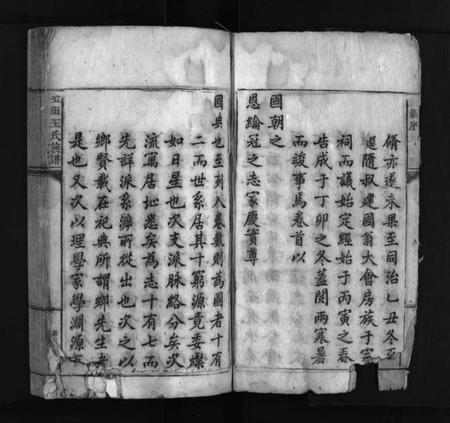 新序
脩亦遂未果至同治乙丑冬至
遑隨叔建國翁大會房族于宗
祠而議始定經始于丙寅之春
告成于丁卯之冬蓋閱兩寒暑
而竣事焉卷首以
國朝之
恩綸冠之志家慶實尊
國典也至列入卷數則為圖者十有
二而世系居其十窮源竟委燦
如日星也次支派脉絡分矣次
流寓居地悉矣為志十有七而
先詳派系源所從出也次之以
鄉賢載在祀典所謂鄉先生者
是也又次以理學家學淵源
王氏族譜